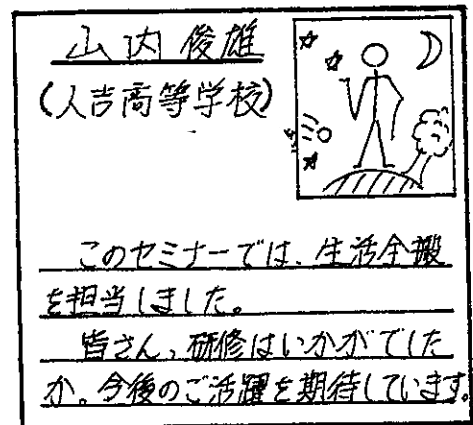 山内 俊雄
(人吉高等学校)
このセミナーでは、生活全搬
を担当しました。
皆さん、研修はいかがでした
か。今後のご活躍を期待しています。